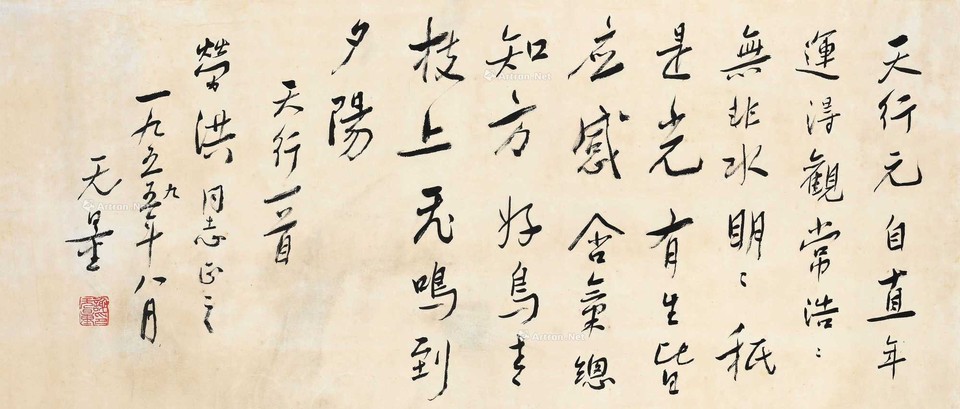 天行元自直年
運得觀常浩〻
無非水明〻秖
是光有生皆
应感含氣總
知方好鳥
枝上飛鳴到
夕陽
天行一首
榮洪同志正之
一九五五九年八月
无量
Artron.Net
Artron.Net
Artron.Net
Artron.Net